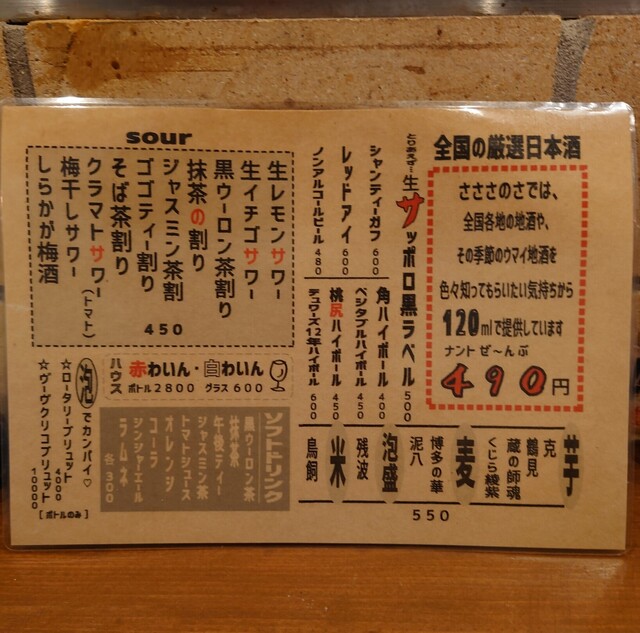 全国の厳選日本酒
さささのさでは、
全国各地の地酒や、
その季節のウマイ地酒を
色々知ってもらいたい気持ちから
120mlで提供しています
ナントぜ〜んぶ
490円
とりあえず…生サッポロ黒ラベル 500
シャンディーガフ 600
レッドアイ 600
ノンアルコールビール 480
角ハイボール 400
ベジタブルハイボール 450
桃尻ハイボール 450
デュワーズ12年ハイボール 600
芋
克
鶴見
蔵の師魂
くじら綾紫
麦
博多の華
泥八
泡盛
残波
米
鳥飼
550
sour
生レモンサワー
生イチゴサワー
黒ウーロン茶割り
抹茶の割り
ジャスミン茶割
ゴゴティー割り
そば茶割り
クラマトサワー(トマト)
梅干しサワー
しらかが梅酒
450
ハウス
赤わいん・白わいん
ボトル2800 グラス600
泡でカンパイ♡
☆ロータリーブリュット 4000
☆ヴーヴクリコブリュット 10000
[ボトルのみ]
ソフトドリンク
黒ウーロン茶
抹茶
午後ティー
ジャスミン茶
トマトジュース
オレンジ
コーラ
ジンジャーエール
ラムネ
各300